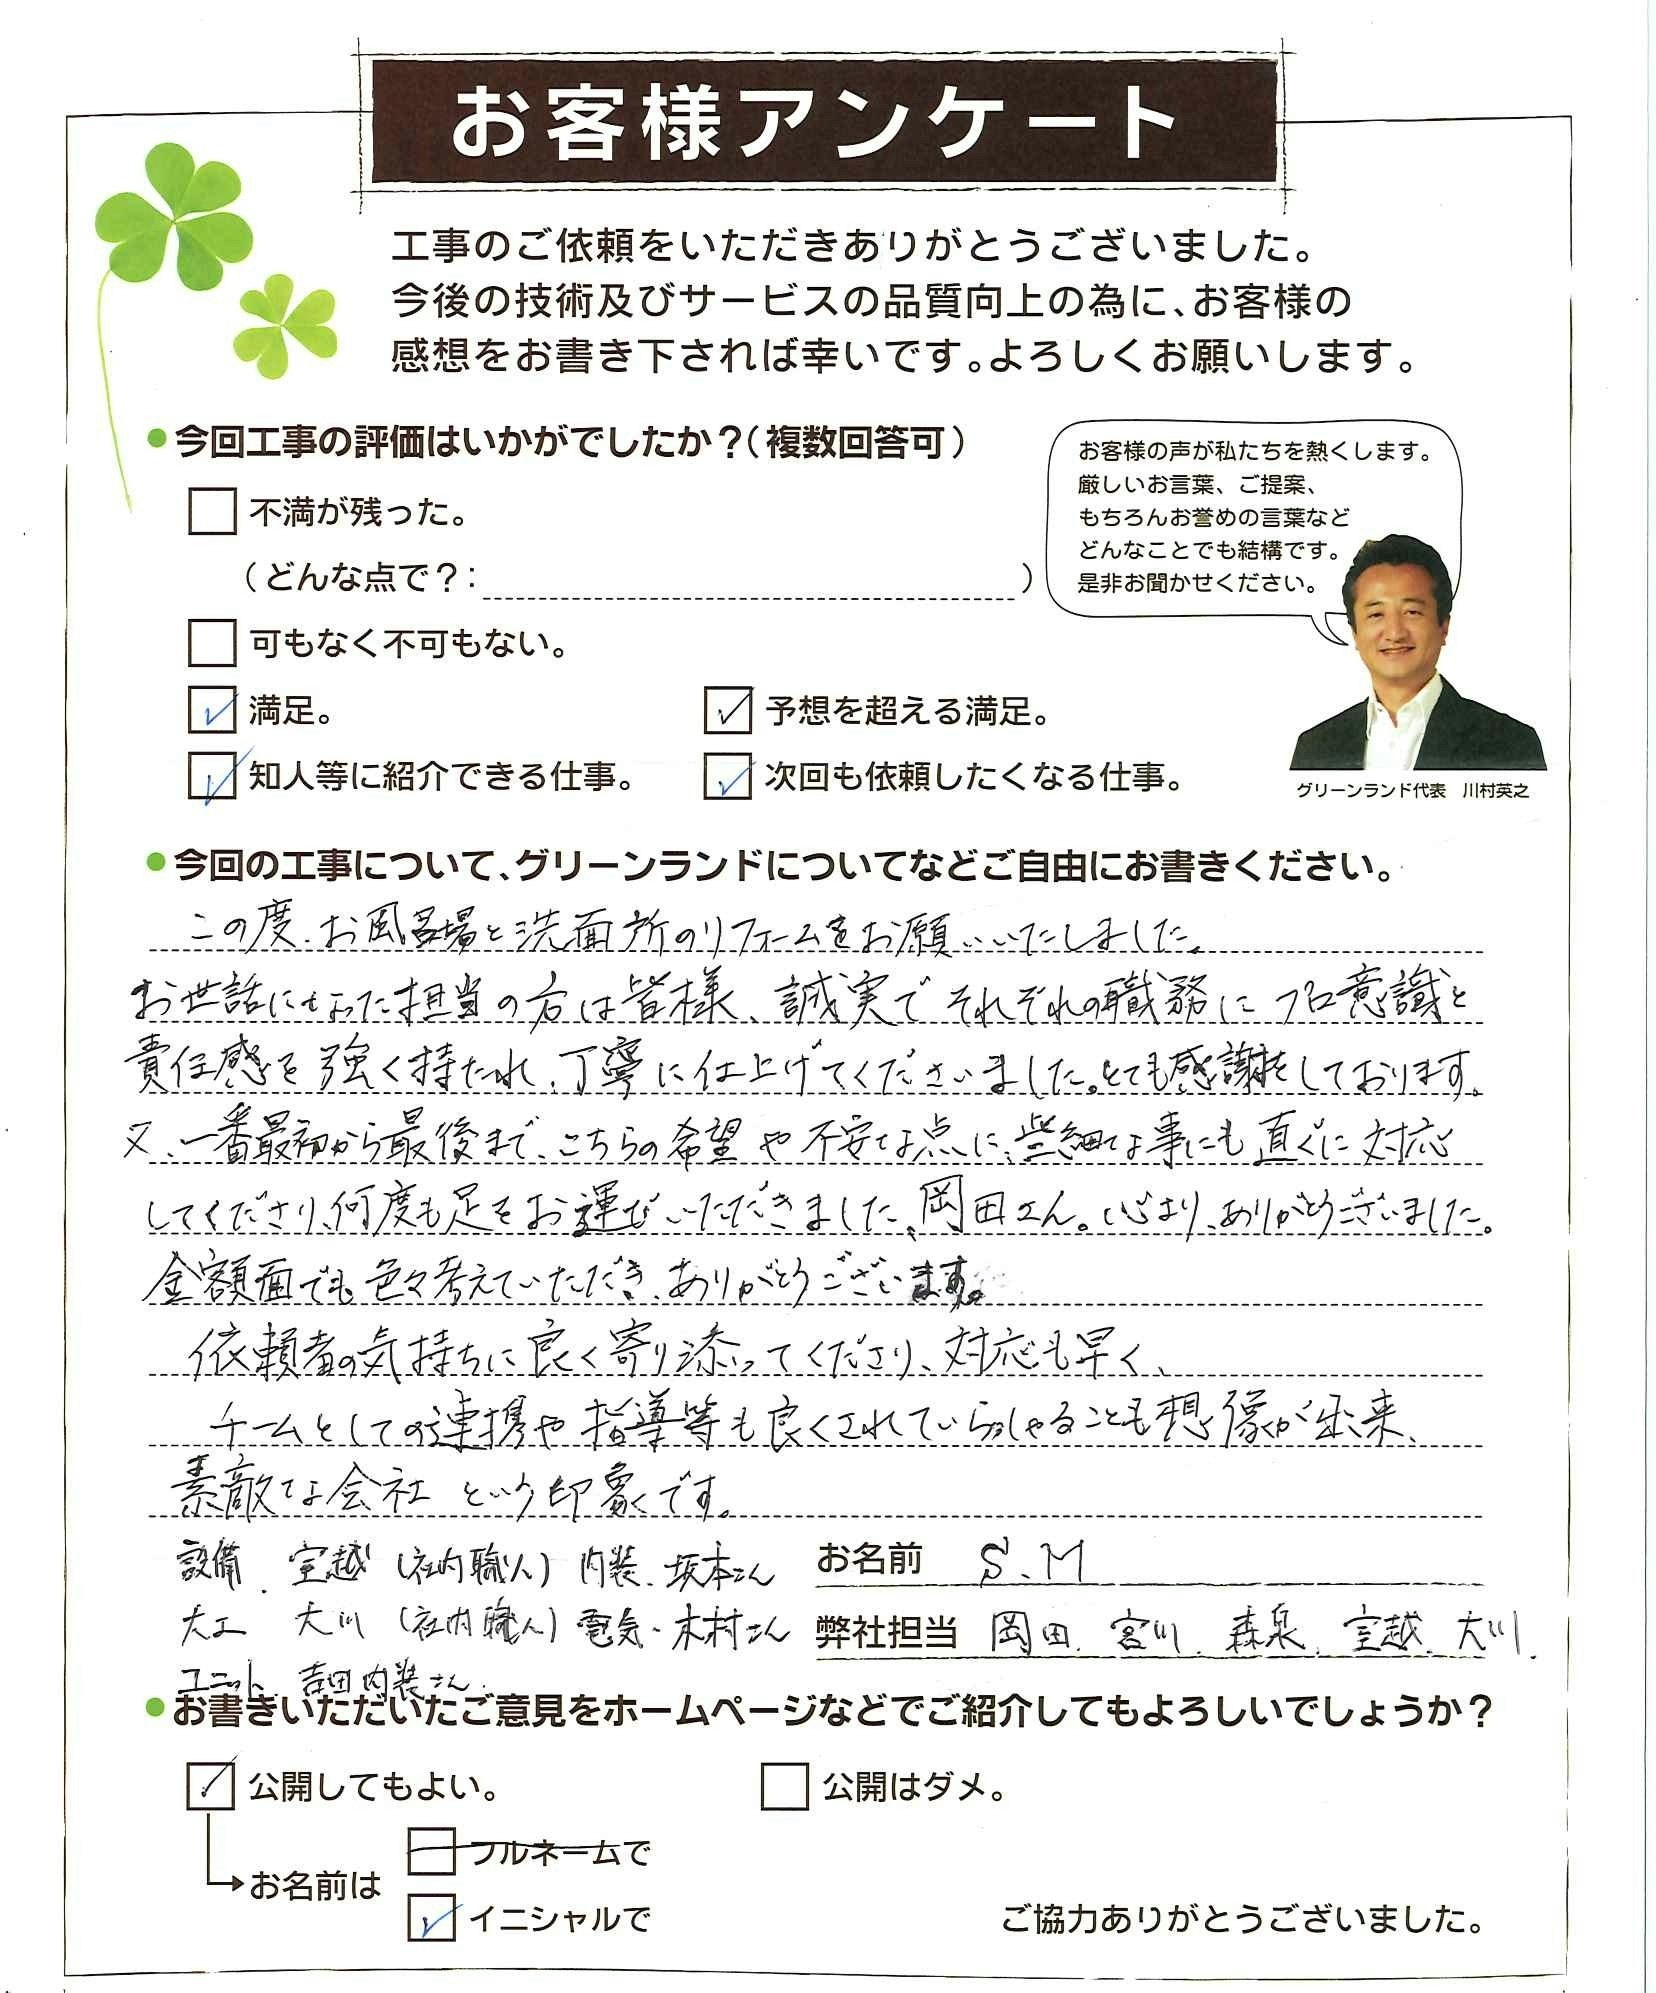 お客様アンケート
工事のご依頼をいただきありがとうございました。
今後の技術及びサービスの品質向上の為に、お客様の
感想をお書き下されば幸いです。よろしくお願いします。
●今回工事の評価はいかがでしたか？（複数回答可）
お客様の声が私たちを熱くします。
厳しいお言葉、ご提案、
もちろんお誉めの言葉など
どんなことでも結構です。
是非お聞かせください。
不満が残った。
（どんな点で？：　）
可もなく不可もない。
満足。　予想を超える満足。
知人等に紹介できる仕事。　次回も依頼したくなる仕事。
グリーンランド代表　川村英之
●今回の工事について、グリーンランドについてなどご自由にお書きください。
この度、お風呂場と洗面所のリフォームをお願いいたしました。
お世話になった担当の方は皆様、誠実でそれぞれの職務にプロ意識と
責任感を強く持たれ、丁寧に仕上げてくださいました。とても感謝をしております。
又、一番最初から最後まで、こちらの希望や不安な点に、些細な事にも直ぐに対応
してくださり、何度も足をお運びいただきました、岡田さん。心より、ありがとうございました。
金額面でも色々考えていただき、ありがとうございます。
依頼者の気持ちに良く寄り添ってくださり、対応も早く、
チームとしての連携や指導等も良くされていらっしゃることも想像が出来、
素敵な会社という印象です。
設備、室越（社内職人）内装、坂本さん
お名前　S.M
大工　大川（社内職人）電気・木村さん
弊社担当　岡田、宮川、森泉、室越、大川、
ユニット、吉田内装さん、
●お書きいただいたご意見をホームページなどでご紹介してもよろしいでしょうか？
公開してもよい。　公開はダメ。
フルネームで
お名前は
イニシャルで
ご協力ありがとうございました。